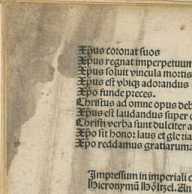 Xpus coronat suos
Xpus regnat imperpetuum
Xpus soluit vincula mortis
Xpus est vbiqꝫ adorandus
Xpo funde preces.
Christus ad omne opus deb
Xpus est laudandus super o
Christi verba sunt dulciter a
Xpo sit honor laus et gloria
Xpo reddamus gratiarum a
Impressum in imperiali c
Hieronymũ Höltzel. A